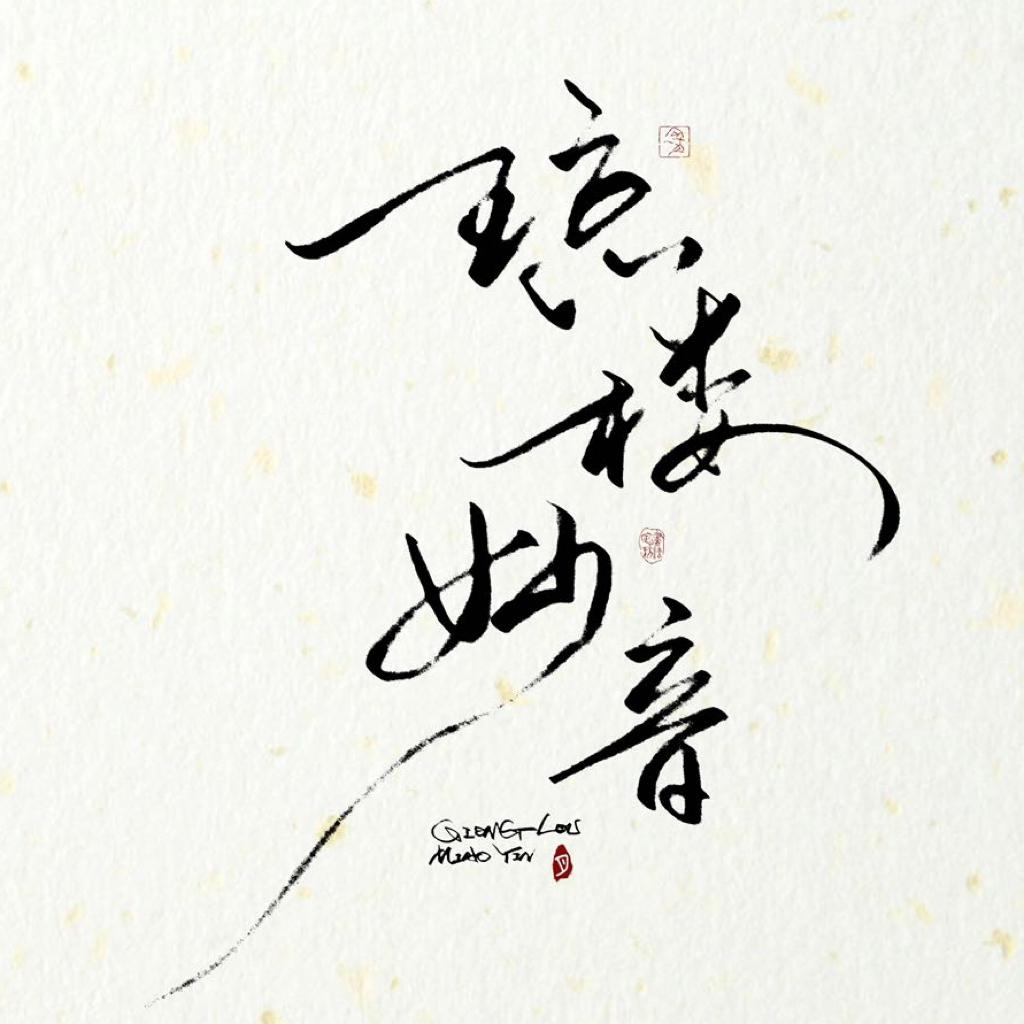 琼楼
妙音
QIONG-LOU
MIAO YIN